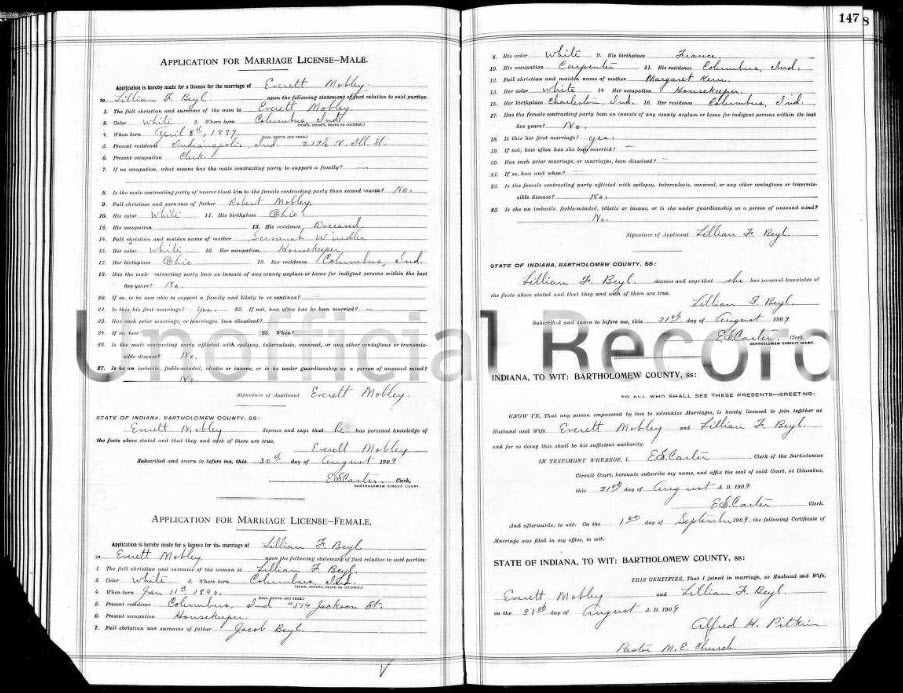 147
APPLICATION FOR MARRIAGE LICENSE—MALE.
Application is hereby made for a license for the marriage of Everett Mobley
to Lillian F. Beyl upon the following statement of fact relative to said parties:
1. The full christian and surname of the man is Everett Mobley
2. Color White 3. Where born Columbus, Ind.
4. When born April 8th, 1889
5. Present residence Indianapolis, Ind. N. Ill. St.
6. Present occupation Clerk
7. If no occupation, what means has the male contracting party to support a family? —
8. Is the male contracting party of nearer blood kin to the female contracting party than second cousin? No.
9. Full christian and surname of father Robert Mobley
10. His color White 11. His birthplace Ohio.
12. His occupation 13. His residence Deceased.
14. Full christian and maiden name of mother Savannah
15. Her color White 16. Her occupation Housekeeper
17. Her birthplace Ohio 18. Her residence Columbus, Ind.
19. Has the male contracting party been an inmate of any county asylum or home for indigent persons within the last
five years? No.
20. If so, is he now able to support a family and likely to so continue? —
21. Is this his first marriage? Yes. 22. If not, how often has he been married? —
23. Has such prior marriage, or marriages, been dissolved?
24. If so, how 25. When?
26. Is the male contracting party afflicted with epilepsy, tuberculosis, venereal, or any other contagious or transmis-
sible disease? No.
27. Is he an imbecile, feebleminded, idiotic or insane, or is he under guardianship as a person of unsound mind?
No.
Signature of Applicant Everett Mobley.
STATE OF INDIANA, BARTHOLOMEW COUNTY, SS:
Everett Mobley deposes and says that he has personal knowledge of
the facts above stated and that they and each of them are true.
Everett Mobley
Subscribed and sworn to before me, this 30th day of August 1909
E S Carter, Clerk.
BARTHOLOMEW CIRCUIT COURT.
APPLICATION FOR MARRIAGE LICENSE—FEMALE.
Application is hereby made for a license for the marriage of Lillian F. Beyl
to Everett Mobley upon the following statement of fact relative to said parties:
1. The full christian and surname of the woman is Lillian F. Beyl.
2. Color White 3. Where born Columbus, Ind.
4. When born Jan 11th
5. Present residence Columbus, Ind Jackson St.
6. Present occupation Housekeeper.
7. Full christian and surname of father Jacob Beyl
8. His color White 9. His birthplace France
10. His occupation Carpenter 11. His residence Columbus, Ind.
12. Full christian and maiden name of mother Margaret
13. Her color White. 14. Her occupation Housekeeper.
15. Her birthplace Charlestown, Ind. 16. Her residence Columbus, Ind.
17. Has the female contracting party been an inmate of any county asylum or home for indigent persons within the last
five years? No.
18. Is this her first marriage? Yes.
19. If not, how often has she been married? —
20. Has such prior marriage, or marriages, been dissolved? —
21. If so, how and when? —
22. Is the female contracting party afflicted with epilepsy, tuberculosis, venereal, or any other contagious or transmis-
sible disease? No.
23. Is she an imbecile, feebleminded, idiotic or insane, or is she under guardianship as a person of unsound mind?
No.
Signature of Applicant Lillian F. Beyl.
STATE OF INDIANA, BARTHOLOMEW COUNTY, SS:
Lillian F. Beyl. deposes and says that she has personal knowledge of
the facts above stated and that they and each of them are true.
Lillian F. Beyl.
Subscribed and sworn to before me, this 31st day of August 1909
E S Carter, Clerk.
BARTHOLOMEW CIRCUIT COURT.
Unofficial Record
INDIANA, TO WIT: BARTHOLOMEW COUNTY, ss:
TO ALL WHO SHALL SEE THESE PRESENTS—GREETING:
KNOW YE, That any person empowered by law to solemnize Marriages, is hereby licensed to join together as
Husband and Wife Everett Mobley and Lillian F. Beyl.
and for so doing this shall be his sufficient authority.
IN TESTIMONY WHEREOF, I, E S Carter Clerk of the Bartholomew
Circuit Court, hereunto subscribe my name, and affix the seal of said Court, at Columbus,
this 31st day of August A. D. 1909
E S Carter Clerk.
And afterwards, to wit: On the 1st day of September 1909, the following Certificate of
Marriage was filed in my office, to wit:
STATE OF INDIANA, TO WIT: BARTHOLOMEW COUNTY, ss:
THIS CERTIFIES, That I joined in marriage, as Husband and Wife,
Everett Mobley and Lillian F. Beyl.
on the 31st day of August A. D. 1909
Alfred H. Pitkin
Pastor M. E. Church.